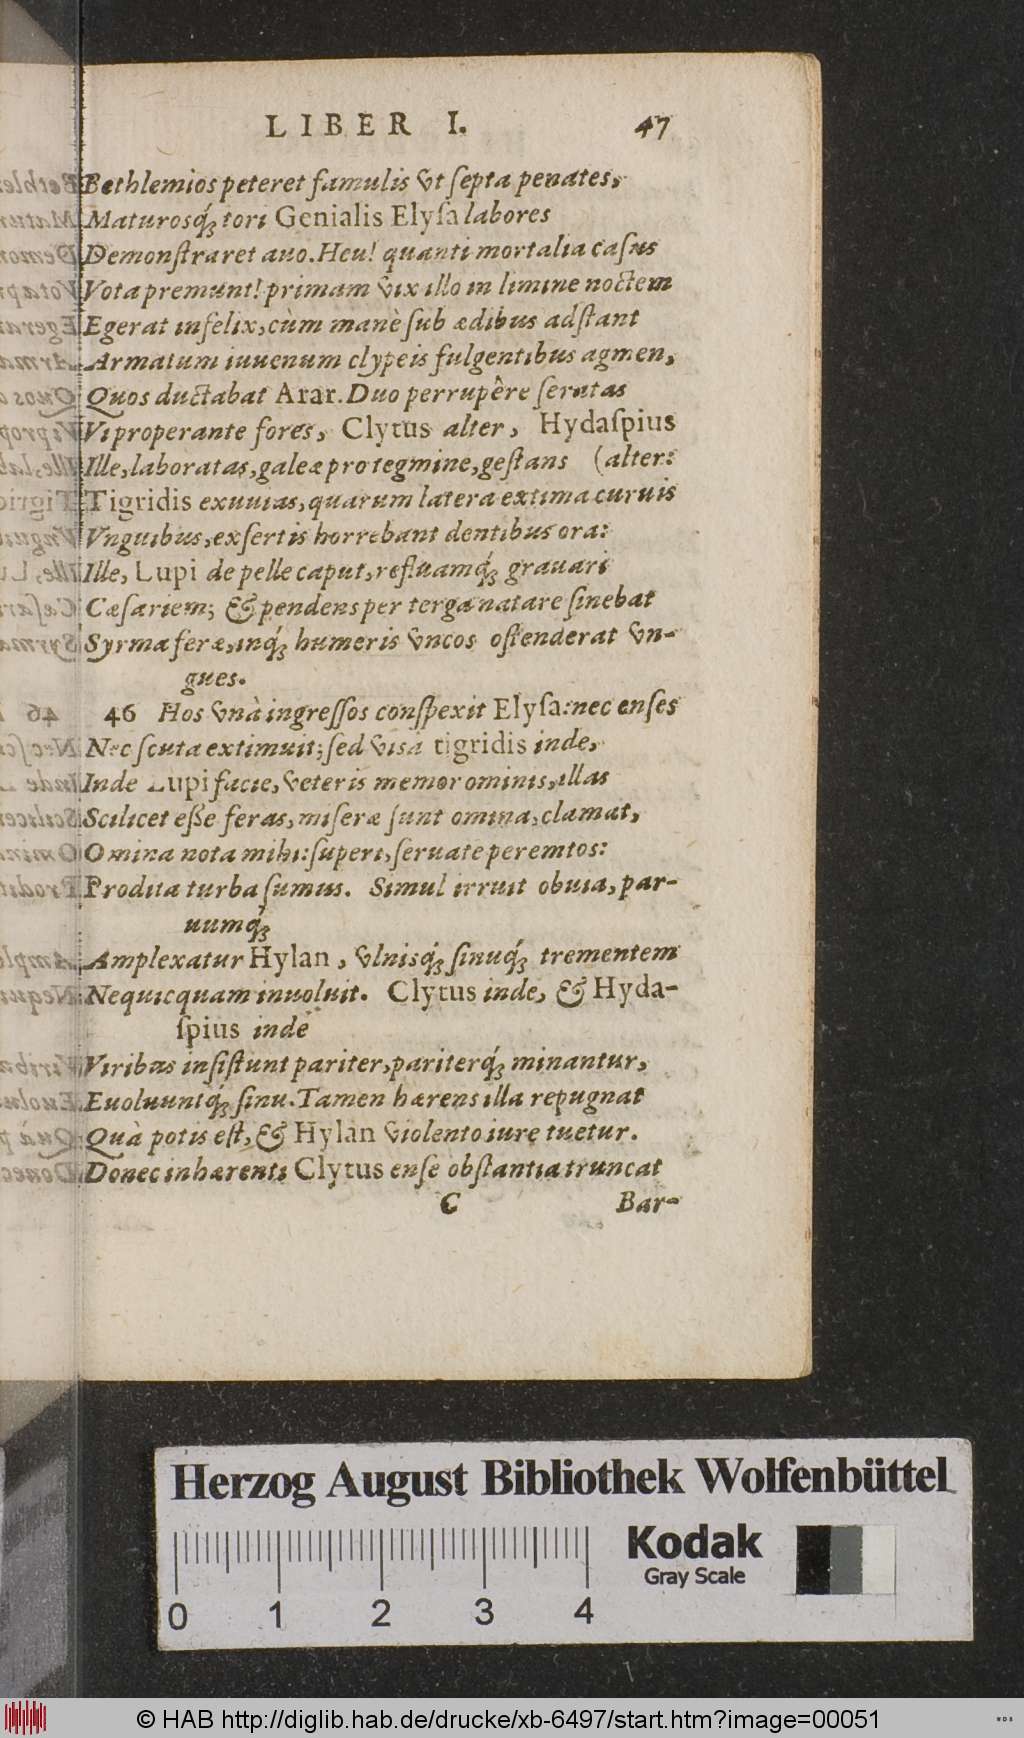 LIBER I. 47
Bethlemios peteret famulis vt ſepta penates,
Maturosq́ꝫ tori Genialis Elyſa labores
Demonſtraret auo. Heu! quanti mortalia caſus
Vota premunt! primam vix illo in limine noctem
Egerat infelix, cùm manè ſub ædibus adſtant
Armatum iuuenum clypeis fulgentibus agmen,
Quos ductabat Arar. Duo perrupêre ſeratas
Vi properante fores, Clytus alter, Hydaſpius
Ille, laboratas, galeæ pro tegmine, geſtans (alter:
Tigridis exuuias, quarum latera extima curuis
Vnguibus, exſertis horrebant dentibus ora:
Ille, Lupi de pelle caput, refluamq́ꝫ grauari
Cæſariem; & pendens per terga natare ſinebat
Syrma feræ, inq́ꝫ humeris vncos oſtenderat vn-
gues.
46 Hos vnà ingreſſos conſpexit Elyſa: nec enſes
Nec ſcuta extimuit; ſed viſâ tigridis inde,
Inde Lupi facie, veteris memor ominis, illas
Scilicet eſſe feras, miſeræ ſunt omina, clamat,
Omina nota mihi: ſuperi, ſeruate peremtos:
Prodita turba ſumus. Simul irruit obuia, par-
uumq́ꝫ
Amplexatur Hylan, vlnisq́ꝫ ſinuq́ꝫ trementem
Nequicquam inuoluit. Clytus inde, & Hyda-
ſpius inde
Viribus inſiſtunt pariter, pariterq́ꝫ minantur,
Euoluuntq́ꝫ ſinu. Tamen hærens illa repugnat
Quà potis eſt, & Hylan violento iure tuetur.
Donec inhærenti Clytus enſe obſtantia truncat
C Bar-
Herzog August Bibliothek Wolfenbüttel
Kodak
Gray Scale
0 1 2 3 4
© HAB http://diglib.hab.de/drucke/xb-6497/start.htm?image=00051